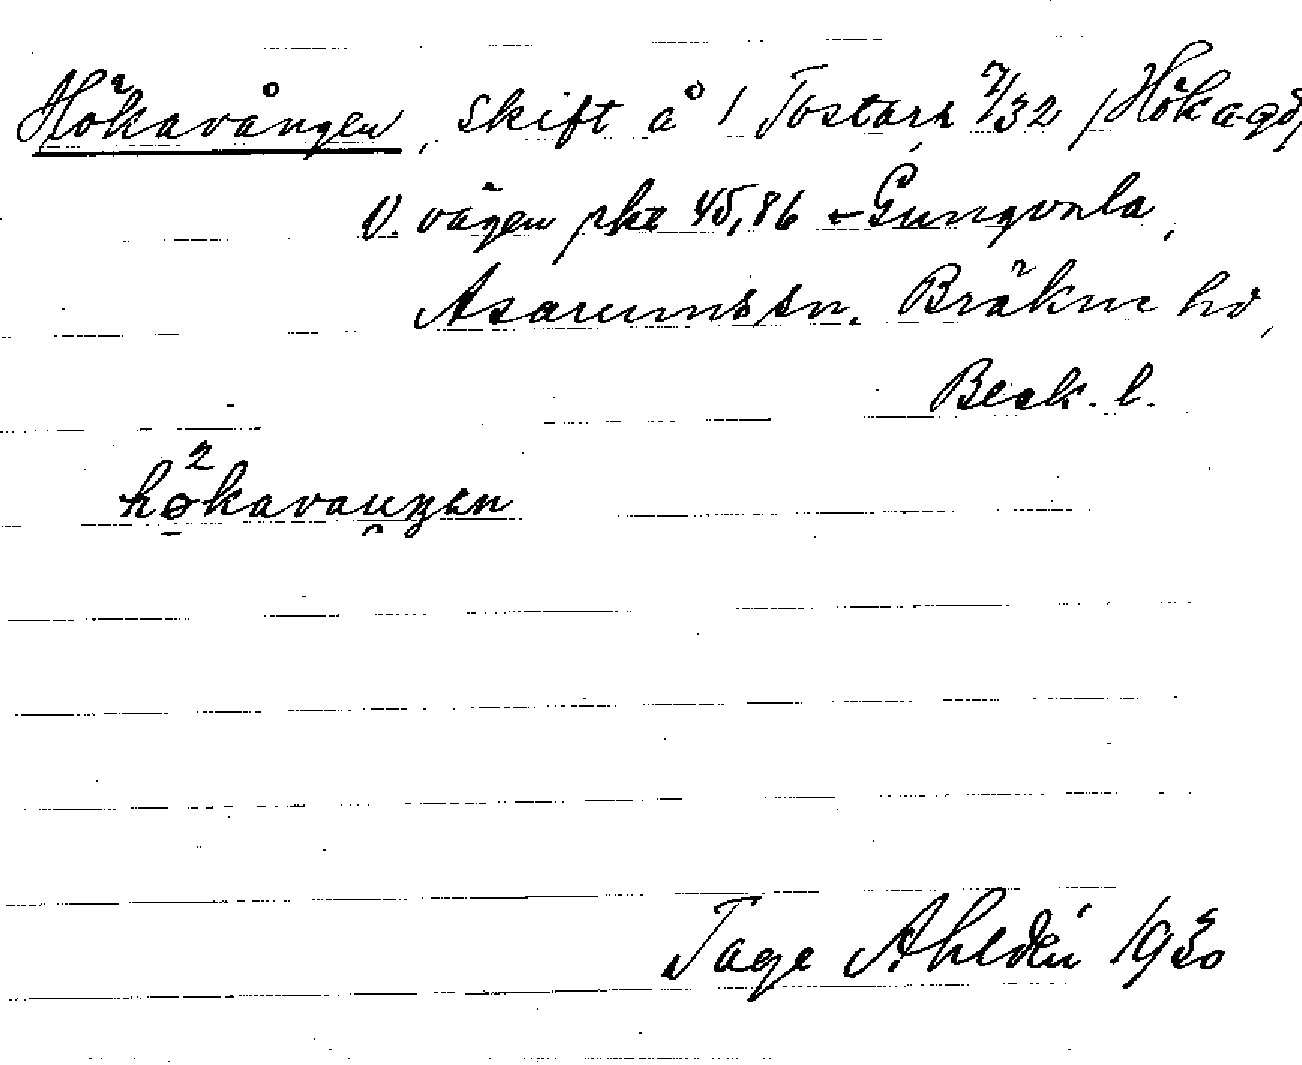 Hökavången, skift å 1 Tostarp 7/32 /Hökagd,
V. vägen pkt 45,86 - Gungvala,
Asarumssn. Bräkne hd,
Blek. l.
hø²kavaŋ̯ɡən
Tage Ahldén 1930